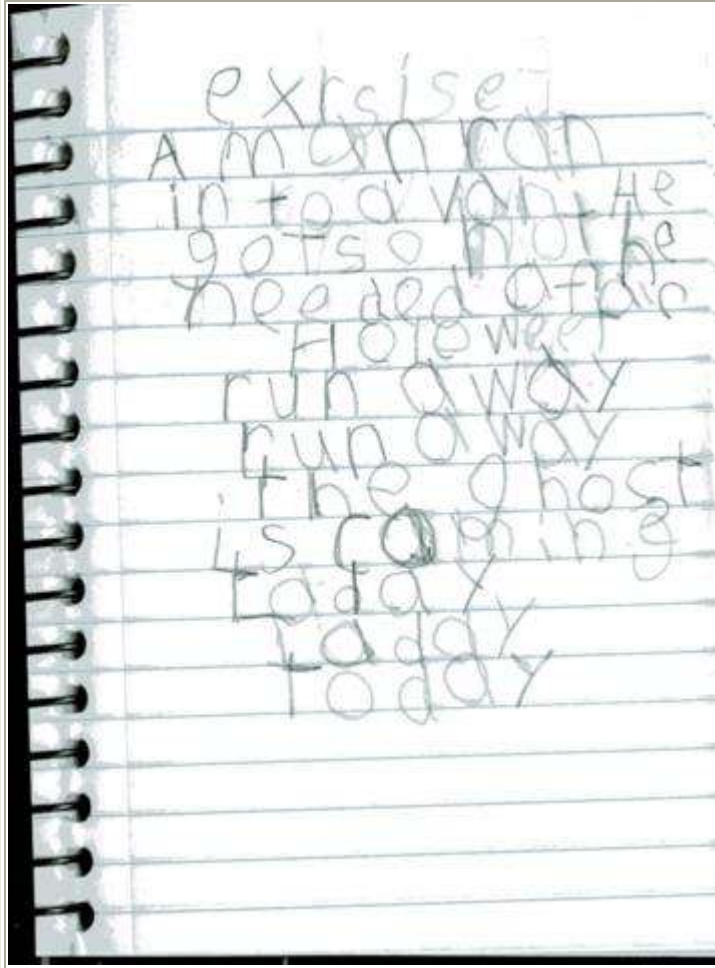 exrsise
A man ran
into a van. He
got so hot he
needed afair
Holowee
run away
run away
the ghost
is coming
today
today
today